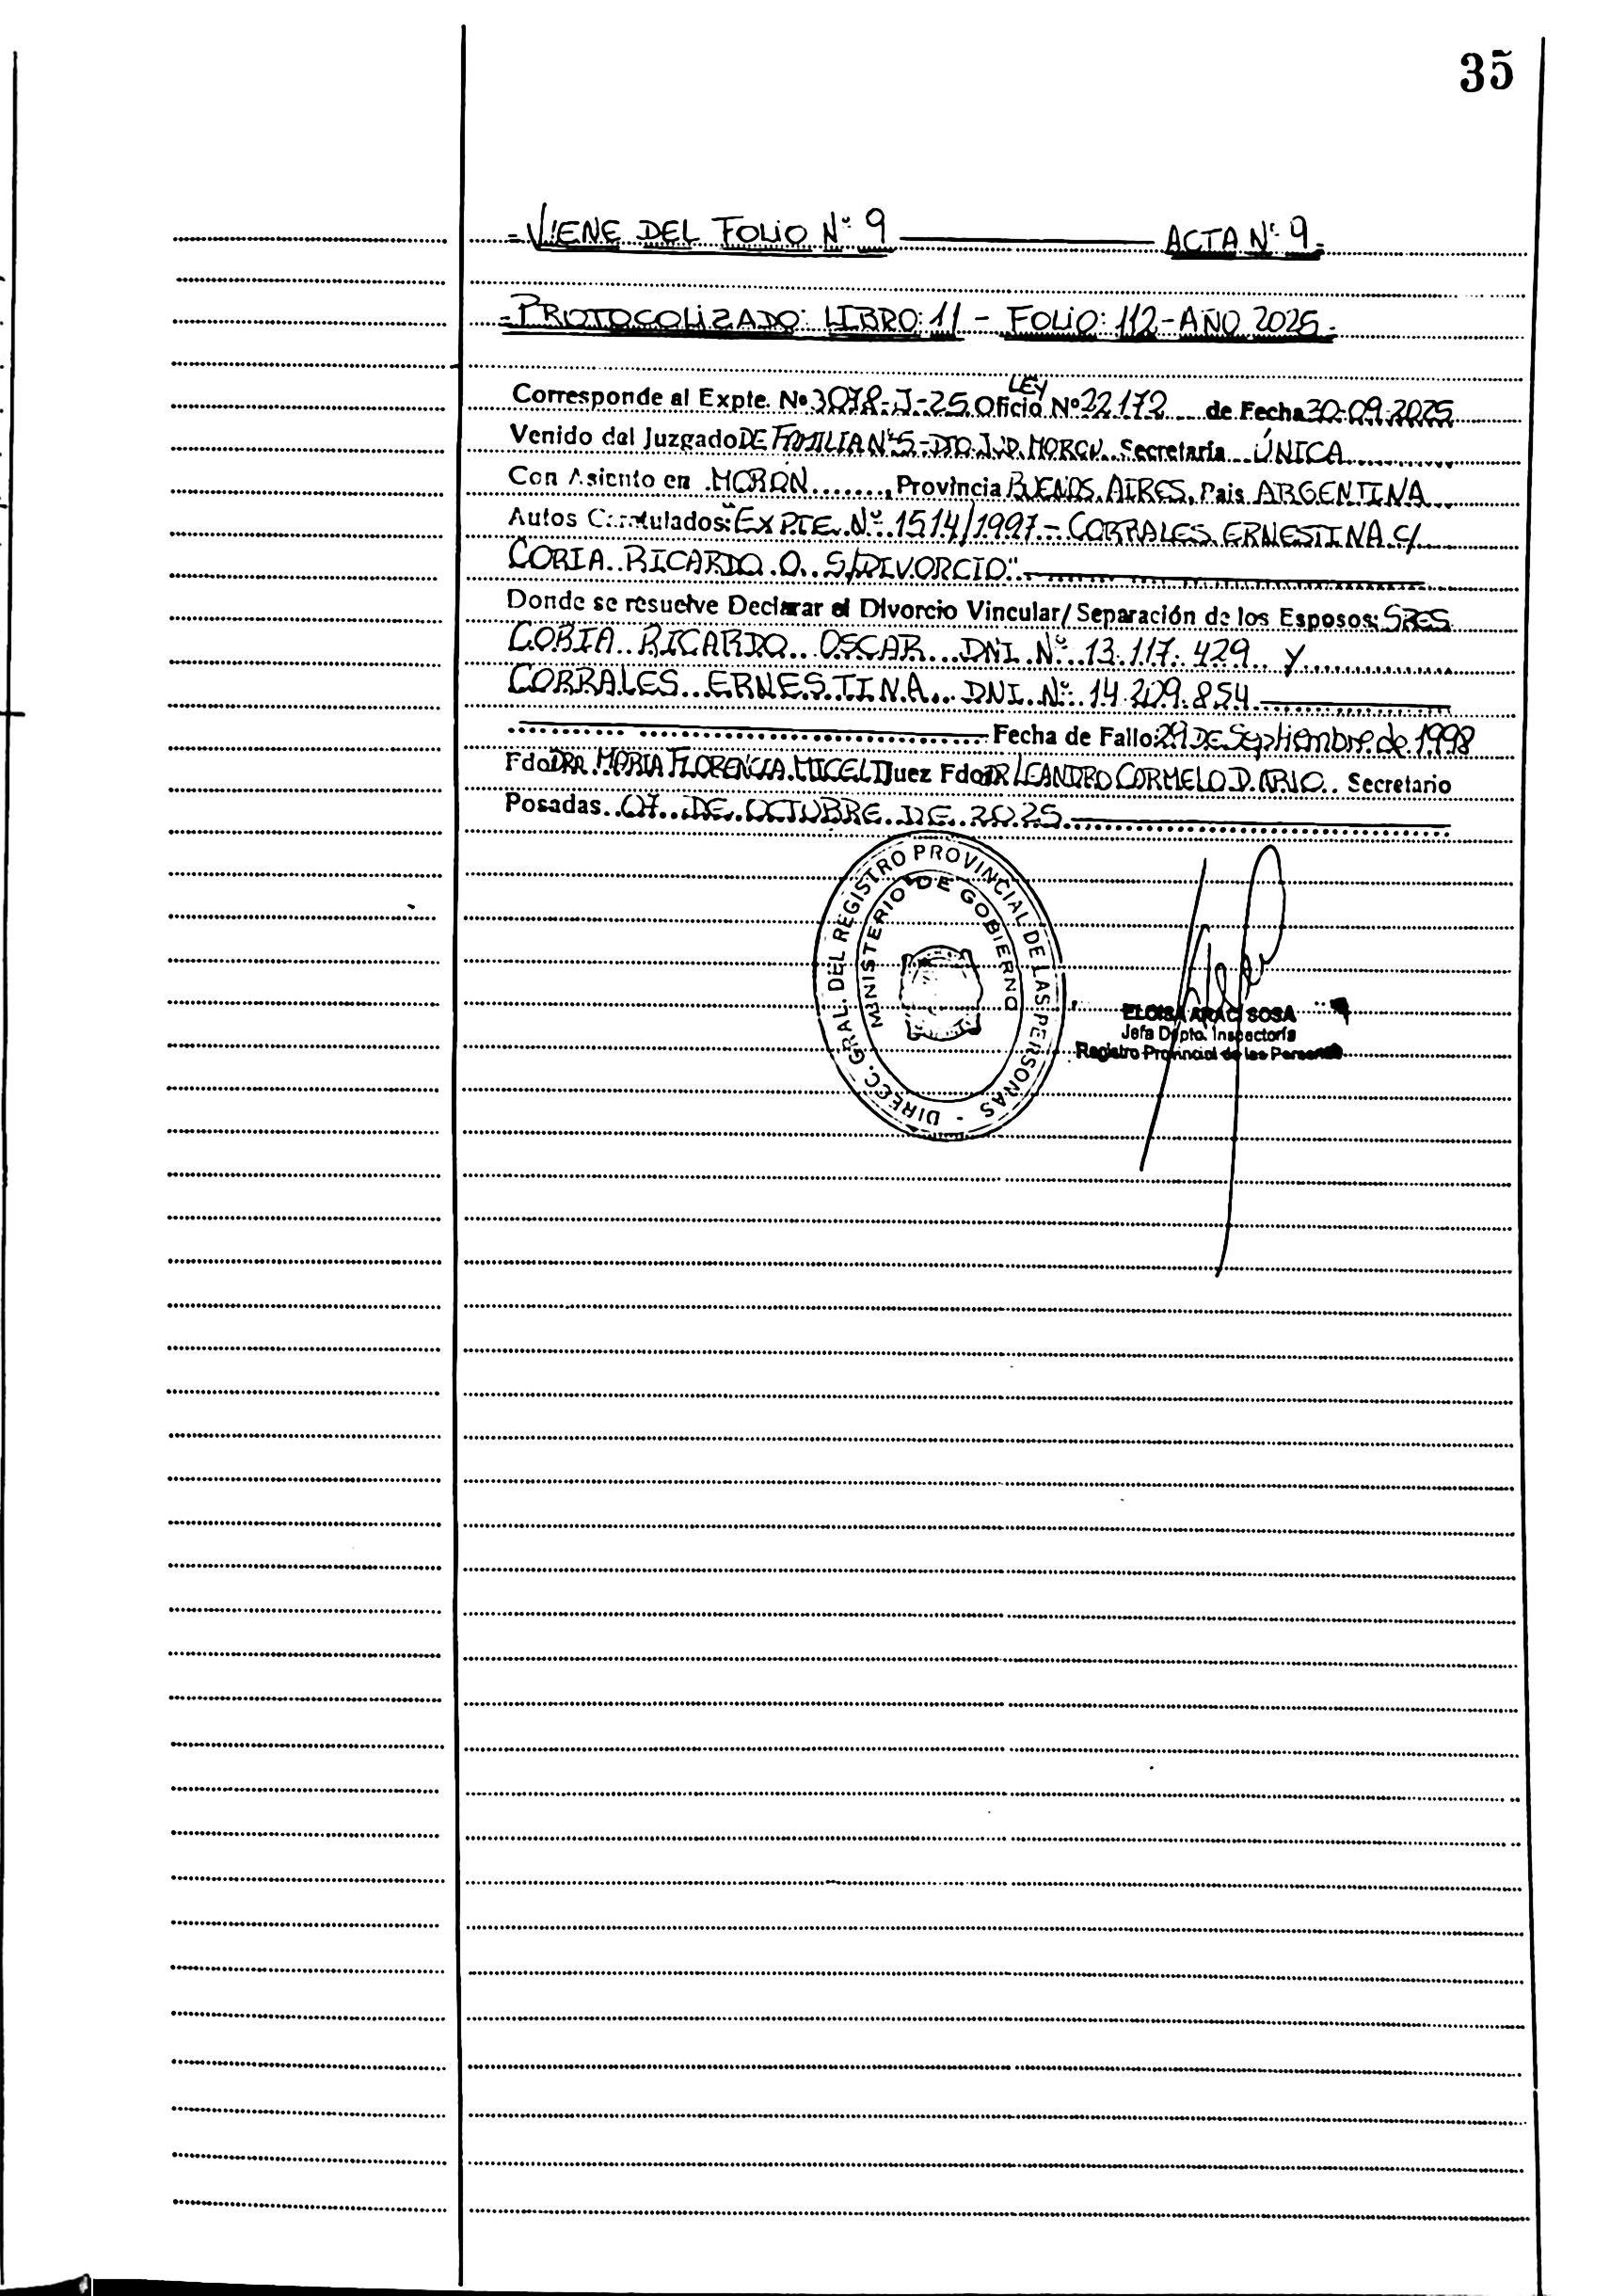 35
- VIENE DEL FOLIO Nº 9 ACTA Nº 9 -
- PROTOCOLIZADO: LIBRO: 11 - FOLIO: 112 - AÑO 2025 -
LEY
Corresponde al Expte. Nº 3078-J-25 Oficio Nº 22172 de Fecha 30-09-2025
Venido del Juzgado DE FAMILIA Nº 5 - DTO. JUD. MORON Secretaría ÚNICA
Con Asiento en MORON, Provincia BUENOS AIRES, Pais ARGENTINA
Autos Caratulados: "EXPTE. Nº 1514/1997 - CORRALES ERNESTINA C/
CORIA RICARDO O. S/DIVORCIO"
Donde se resuelve Declarar el Divorcio Vincular/ Separación de los Esposos: SRES
CORIA RICARDO OSCAR DNI Nº 13.117.429 Y
CORRALES ERNESTINA DNI Nº 14.209.854
Fecha de Fallo: 29 DE Septiembre de 1998
Fdo DRA MARIA FLORENCIA MICELI Juez Fdo DR LEANDRO CARMELO D. ARIO Secretario
Posadas 07 DE OCTUBRE DE 2025
DIRECC. GRAL. DEL REGISTRO PROVINCIAL DE LAS PERSONAS -
MINISTERIO DE GOBIERNO
ELOISA ARACI SOSA
Jefa Dpto. Inspectoría
Registro Provincial de las Personas